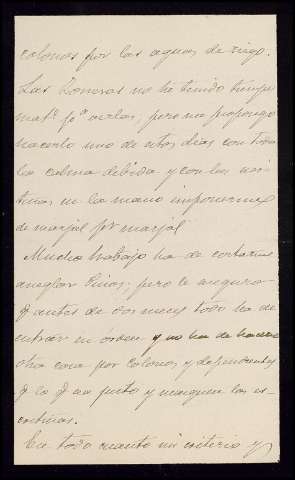 colonos por las aguas de riego.
Las Lomosas no he tenido tiempo
mat.l p.a verlas; pero me propongo
hacerlo uno de estos días con toda
la calma debida y con las
en la mano imponerme
de marjal por marjal
Mucho trabajo ha de costarme
arreglar Pinos; pero le aseguro
q antes de dos meses todo ha de
entrar en órden y no ha de hacerse
otra cosa por Colonos y dependientes
q lo q sea justo y marquen las es-
crituras.
En todo cuanto mi criterio y